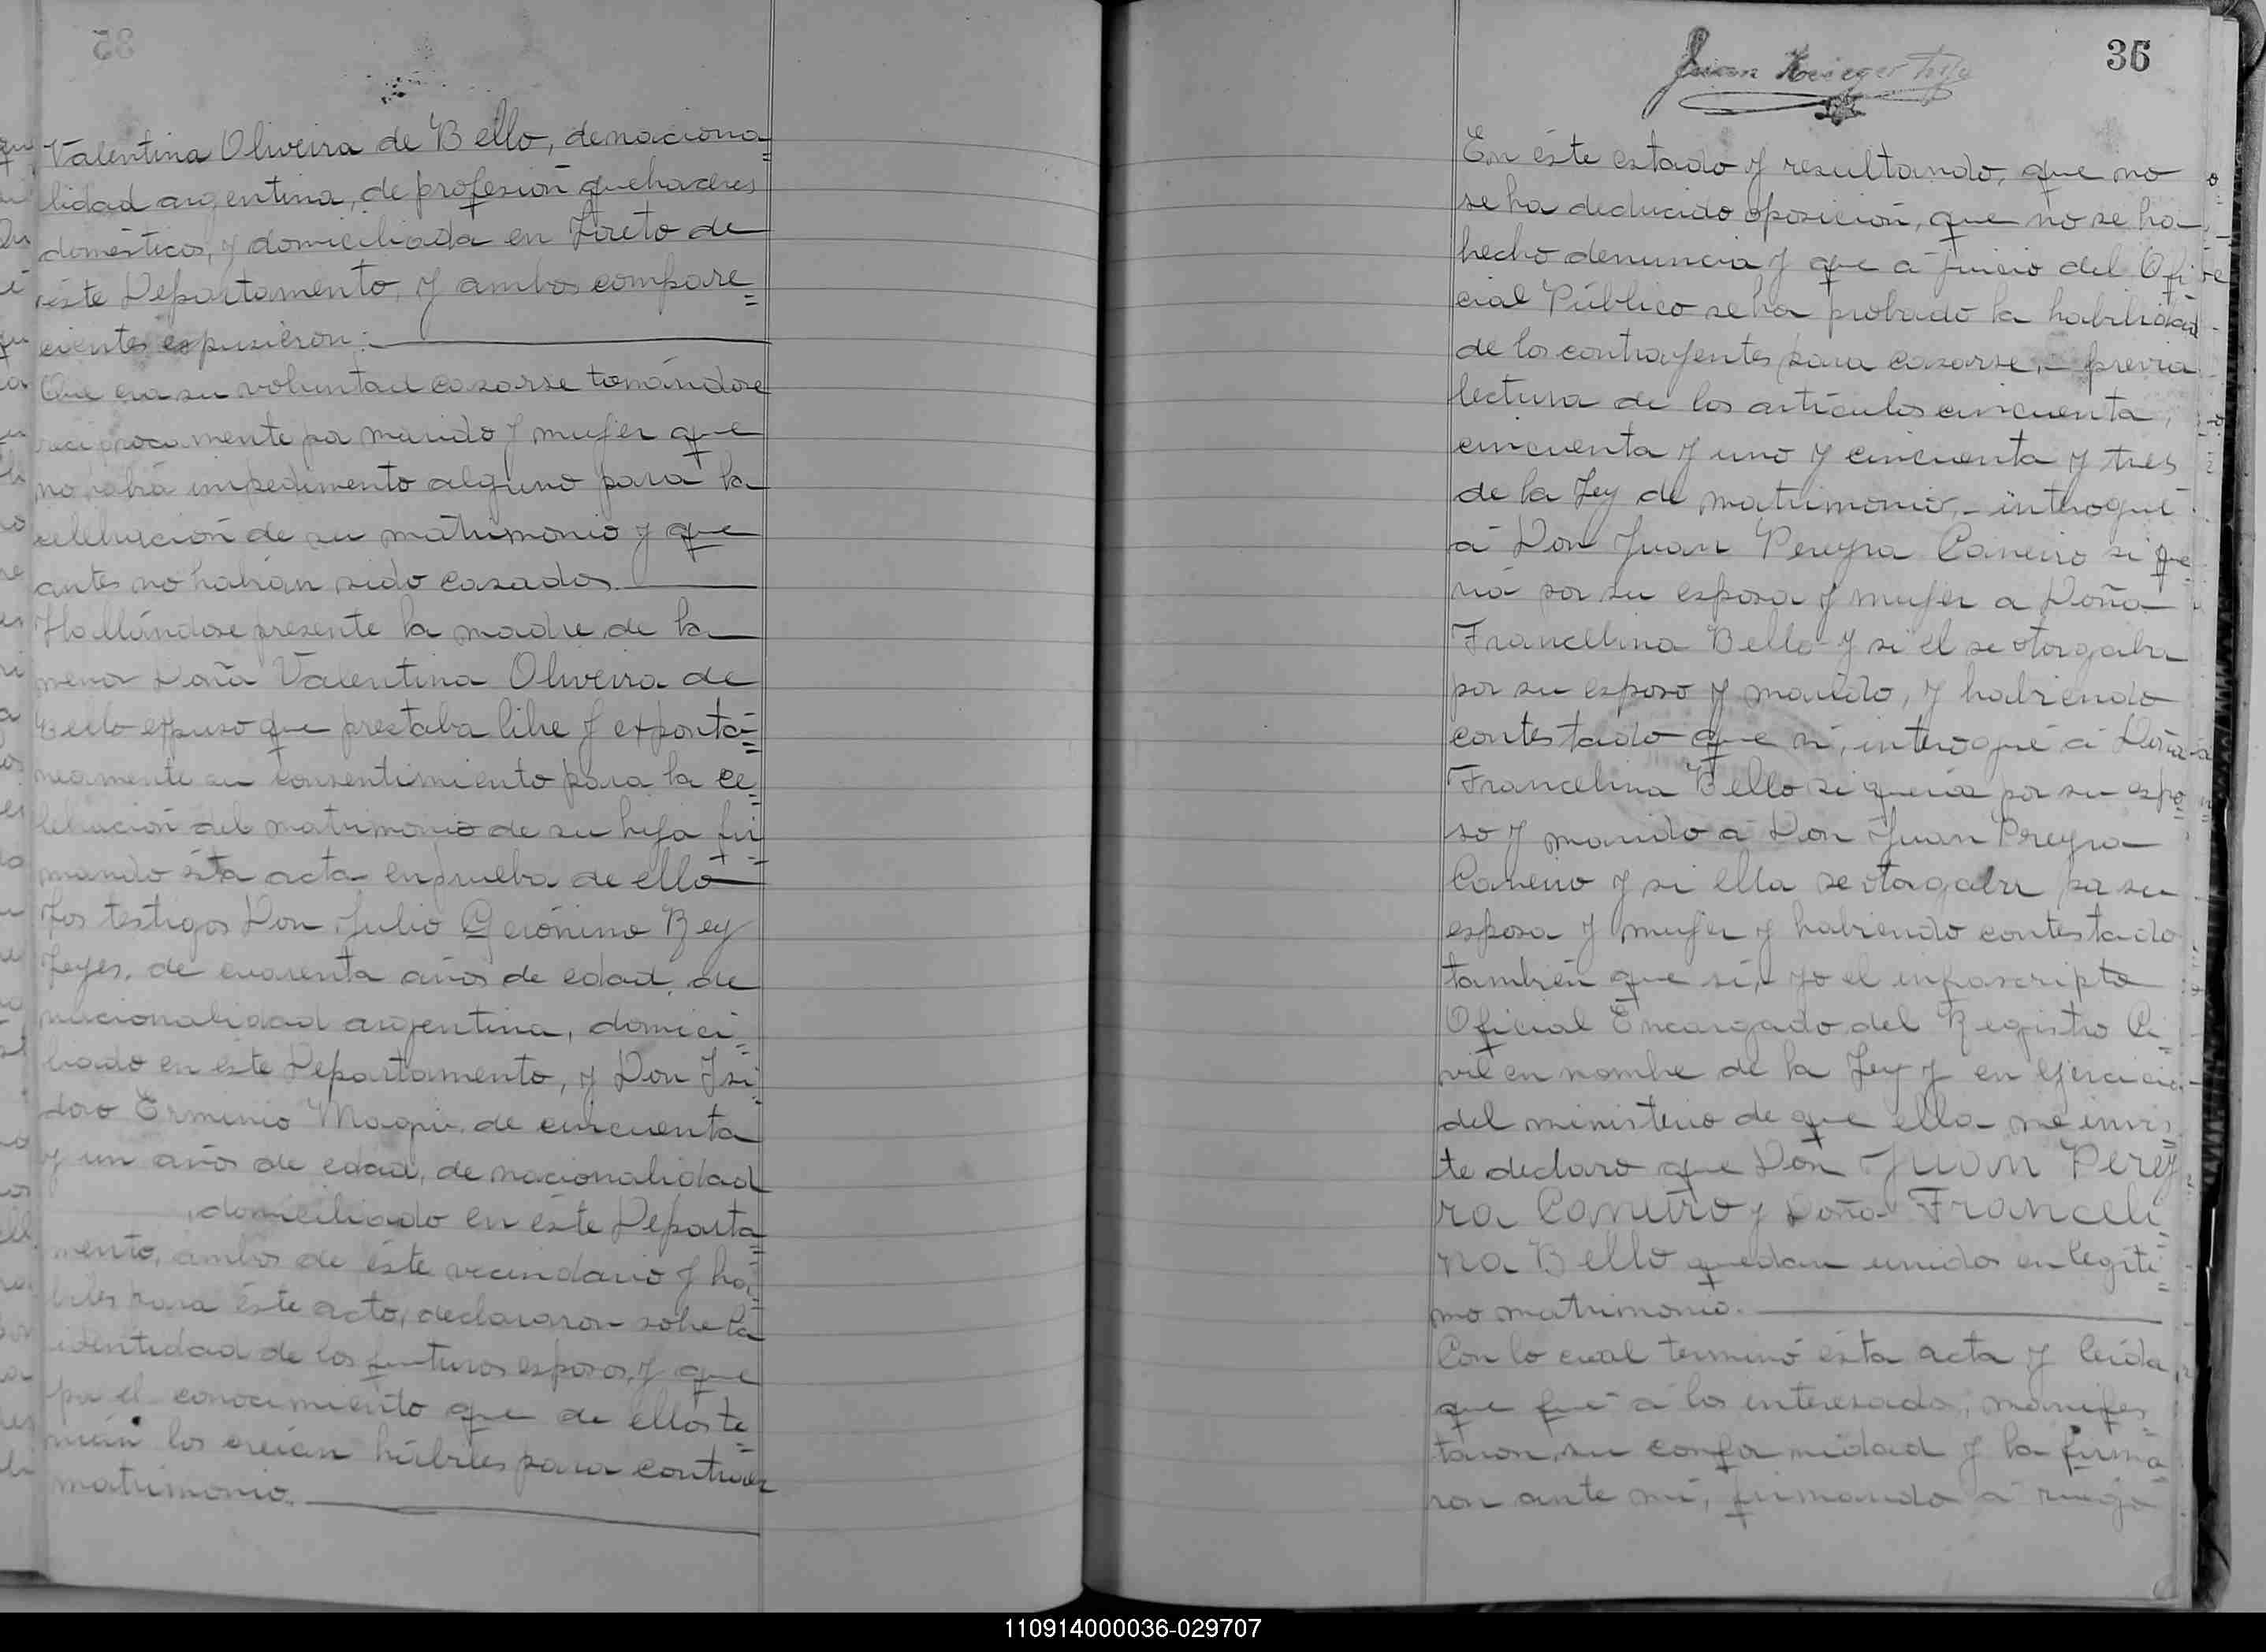 Valentina Oliveira de Bello, de naciona=
lidad argentina, de profesión quehaceres
domésticos, y domiciliada en Loreto de
éste Departamento, y ambos compare=
cientes expusieron:
Que era su voluntad casarse tomándose
reciprocamente por marido y mujer que
no había impedimento alguno para la
celebración de su matrimonio y que
antes no habían sido casados.
Hallándose presente la madre de la
menor Doña Valentina Oliveira de
Bello expuso que prestaba libre y expontá=
neamente su consentimiento para la ce=
lebración del matrimonio de su hija fir=
mando ésta acta en prueba de ello
Los testigos Don Julio Gerónimo Rey
Leyes, de cuarenta años de edad, de
nacionalidad argentina, domici=
liado en éste Departamento, y Don Isi=
doro Erminio de cincuenta
y un años de edad, de nacionalidad
, domiciliado en éste Departa=
mento, ambos de éste vecindario y há=
biles para éste acto, declararon sobre la
identidad de los futuros esposos, y que
por el conocimiento que de ellos te=
nían los creían hábiles para contraer
matrimonio.
36
Juan Krieger
En éste estado y resultando, que no
se ha deducido oposición, que no se ha
hecho denuncia y que á juicio del Ofi
cial Público se ha probado la habilidad
de los contrayentes para casarse, previa
lectura de los artículos cincuenta,
cincuenta y uno y cincuenta y tres
de la Ley de matrimonio, introgué
á Don Juan Pereyra Caneiro si que=
ría por su esposa y mujer a Doña
Francelina Bello y si el se otorgaba
por su esposo y marido, y habiendo
contestado que sí, introgué á Doña
Francelina Bello si quería por su espo=
so y marido á Don Juan Pereyra
Caneiro y si ella se otorgaba por su
esposa y mujer y habiendo contestado
también que sí, yo el infrascripto
Oficial Encargado del Registro Ci=
vil en nombre de la Ley y en ejercicio
del ministerio de que ella me invis=
te declaro que Don Juan Perey
ra Caneiro y Doña Franceli=
na Bello quedan unidos en legíti=
mo matrimonio.
Con lo cual terminó ésta acta y leída
que fué á los interesados, manifes=
taron su conformidad y la firma=
ron ante mí, firmando á ruego
110914000036-029707